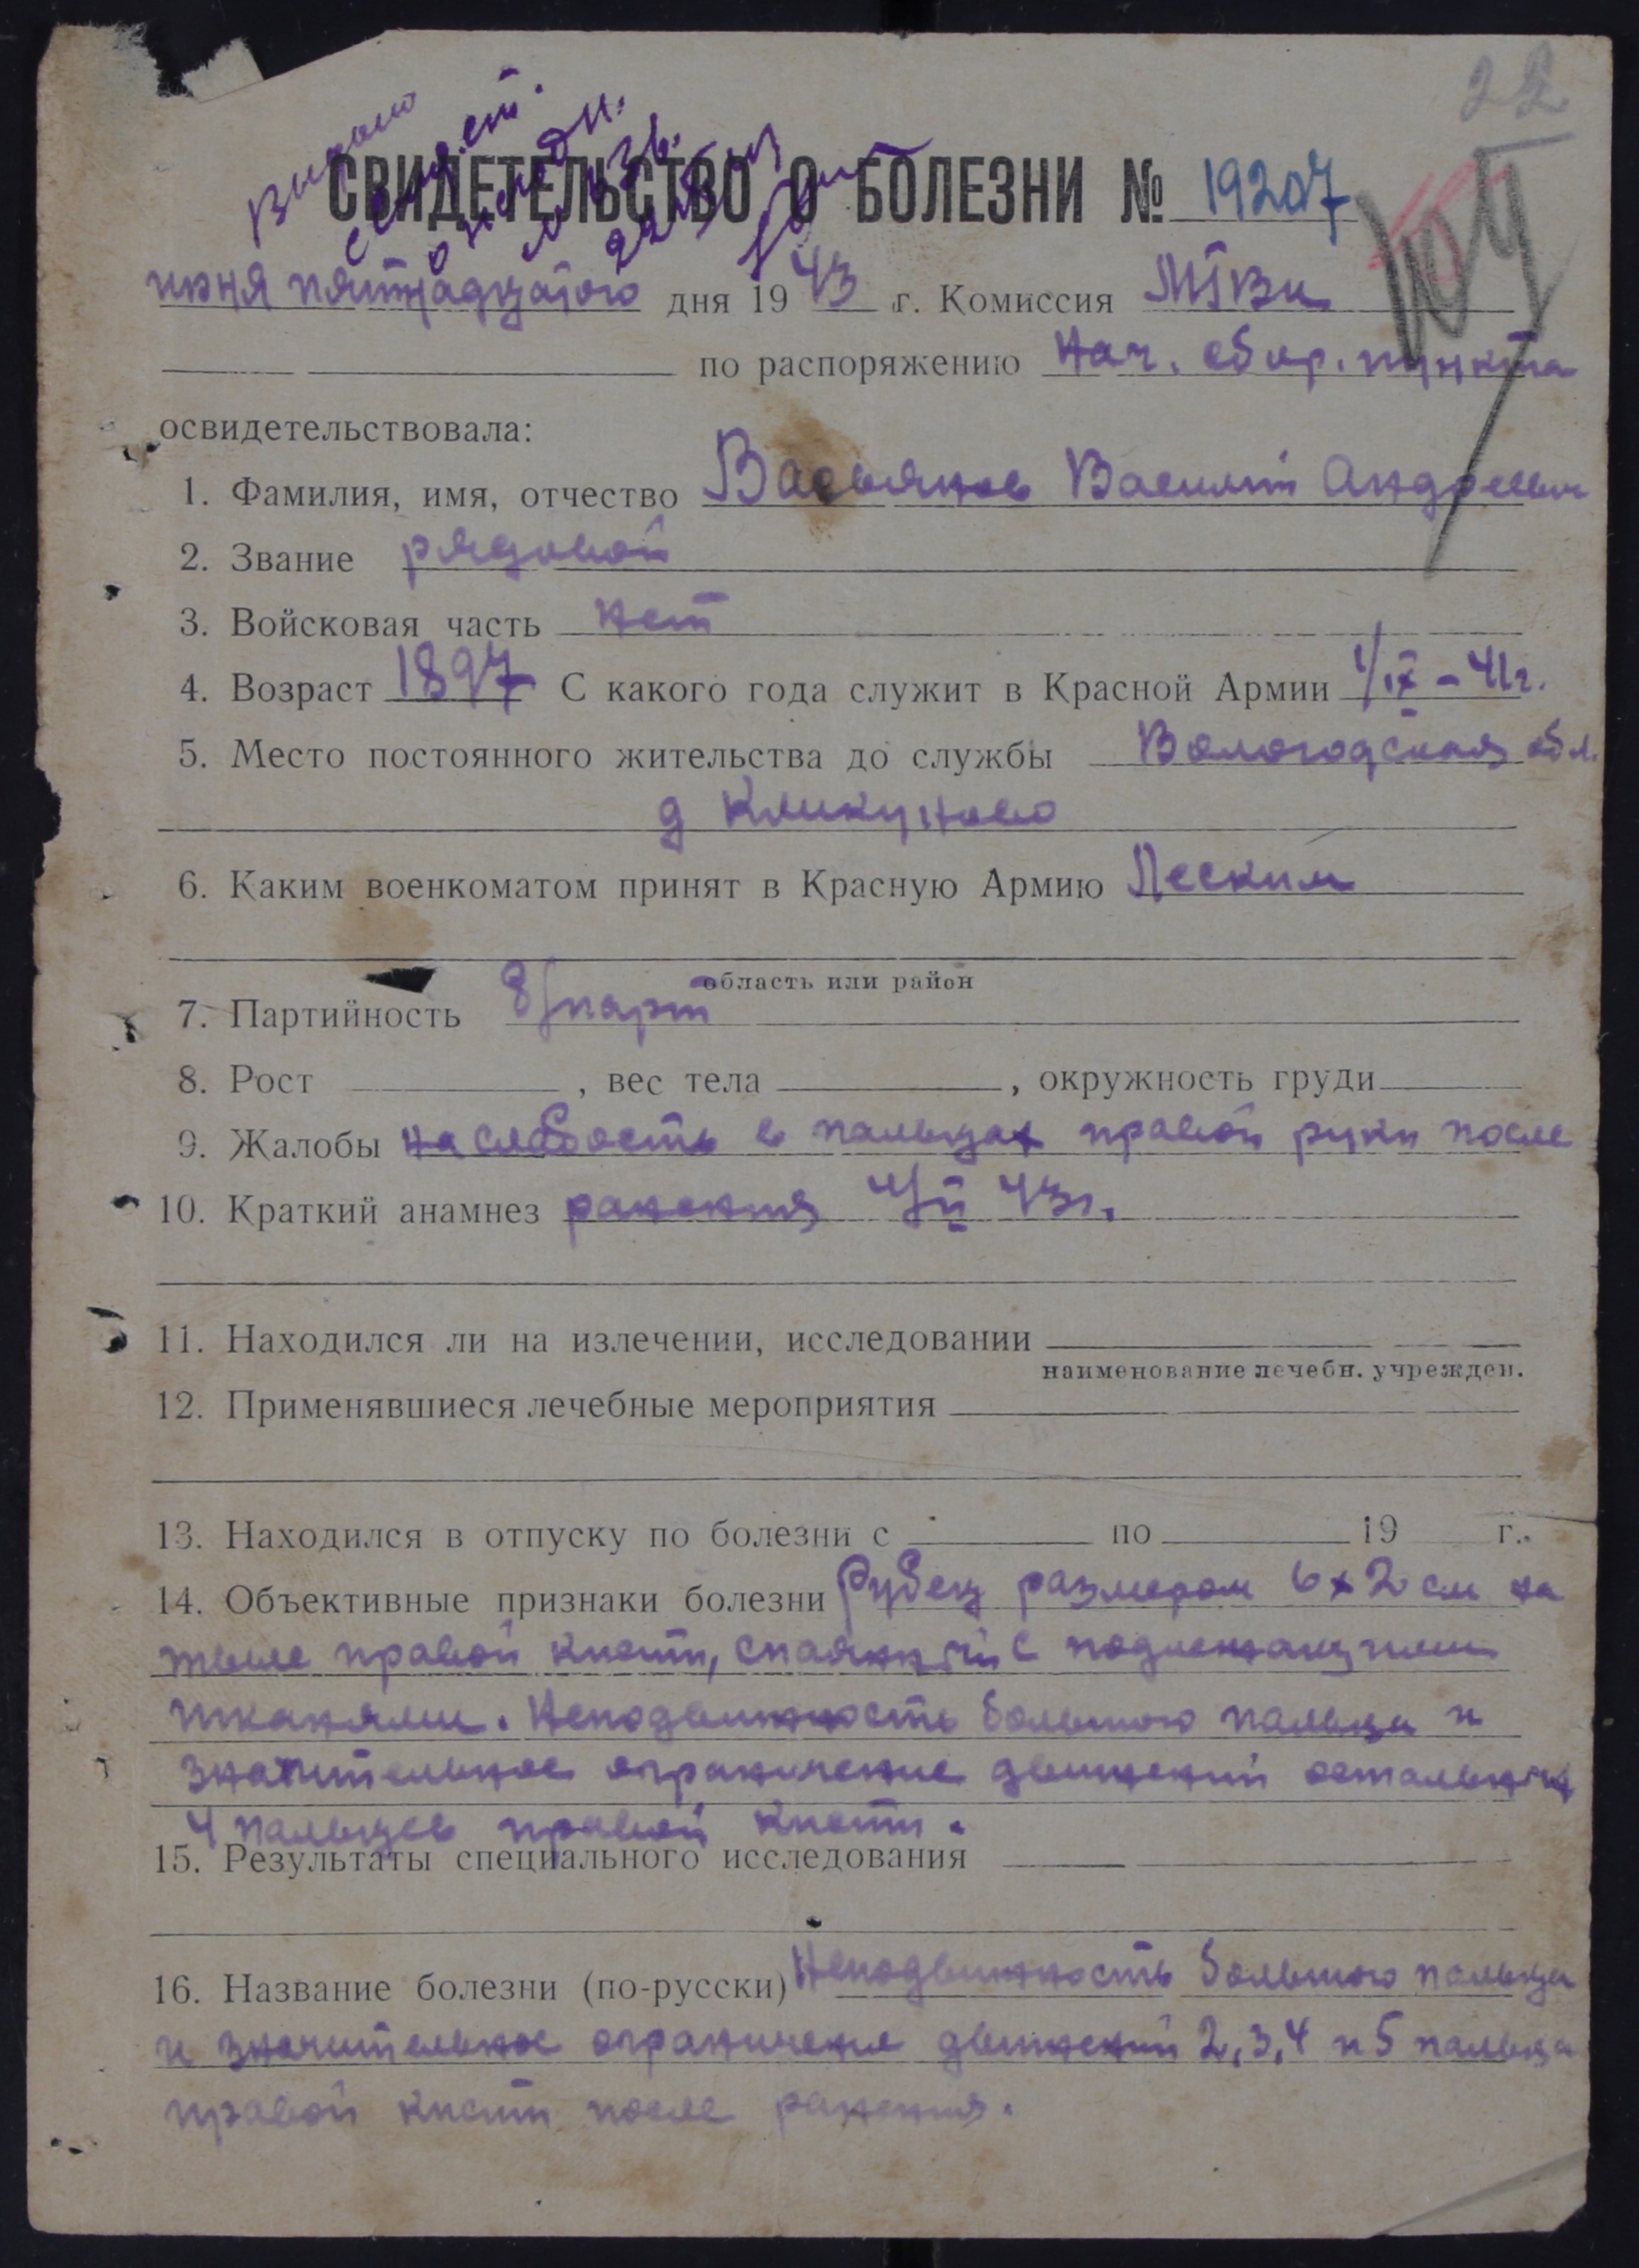 22
Выдано
СВИДЕТЕЛЬСТВО О БОЛЕЗНИ № 19207
июня пятнадцатого дня 1943 г. Комиссия
по распоряжению Нач. сбор. пункта
освидетельствовала:
1. Фамилия, имя, отчество Васьянов Василий Андреевич
2. Звание рядовой
3. Войсковая часть нет
4. Возраст 1897 С какого года служит в Красной Армии 1/IX-41г.
5. Место постоянного жительства до службы Вологодская обл.
д Кликуново
6. Каким военкоматом принят в Красную Армию
область или район
7. Партийность б/парт
8. Рост , вес тела , окружность груди
9. Жалобы на слабость в пальцах правой руки после
10. Краткий анамнез ранения 4/II 43г.
11. Находился ли на излечении, исследовании
наименование лечебн. учрежден.
12. Применявшиеся лечебные мероприятия
13. Находился в отпуску по болезни с по 19 г.
14. Объективные признаки болезни Рубец размером 6х2 см на
тыле правой кисти, спаянный с подлежащими
тканями. Неподвижность большого пальца и
значительное ограничение движений остальных
4 пальцев правой кисти.
15. Результаты специального исследования
16. Название болезни (по-русски) Неподвижность большого пальца
и значительное ограничение движений 2,3,4 и 5 пальца
правой кисти после ранения.